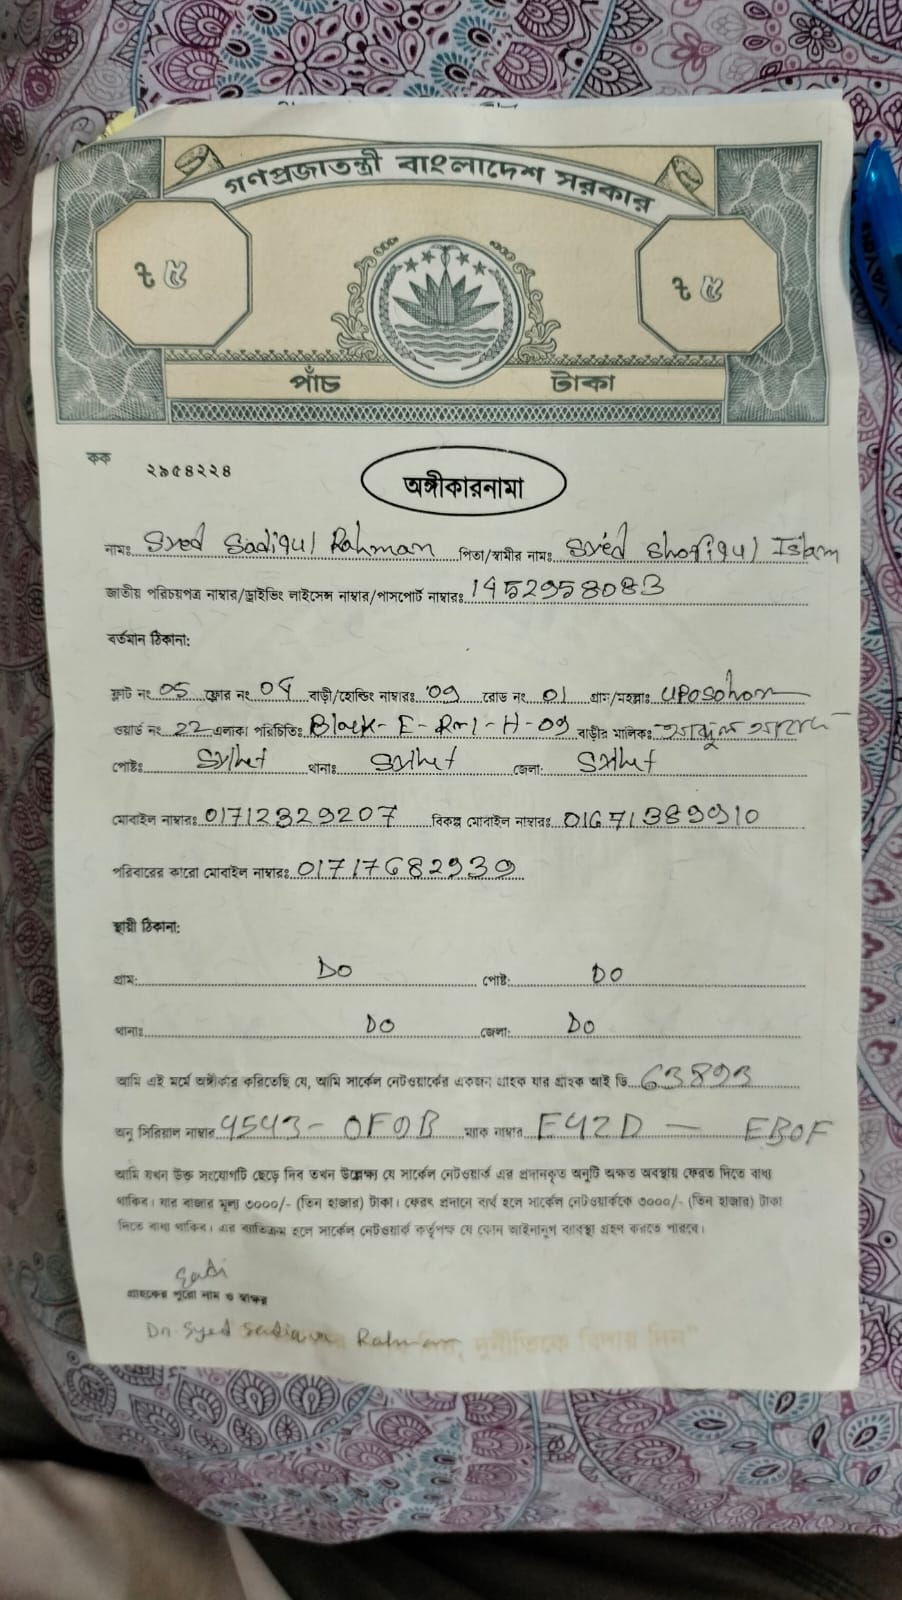 গণপ্রজাতন্ত্রী বাংলাদেশ সরকার
৳ ৫ ৳ ৫
পাঁচ টাকা
কক ২৯৫৪২২৪
অঙ্গীকারনামা
নামঃ Syed Sadiqul Rahman পিতা/স্বামীর নামঃ Syed Shofiqul Islam
জাতীয় পরিচয়পত্র নাম্বার/ড্রাইভিং লাইসেন্স নাম্বার/পাসপোর্ট নাম্বারঃ 1952958083
বর্তমান ঠিকানা:
ফ্লাট নং 05 ফ্লোর নং 04 বাড়ী/হোল্ডিং নাম্বারঃ 09 রোড নং 01 গ্রাম/মহল্লাঃ Uposohor
ওয়ার্ড নং 22 এলাকা পরিচিতিঃ Block-E-Rn1-H-09 বাড়ীর মালিকঃ
পোষ্টঃ Sylhet থানাঃ Sylhet জেলা: Sylhet
মোবাইল নাম্বারঃ 01712329207 বিকল্প মোবাইল নাম্বারঃ 01671389910
পরিবারের কারো মোবাইল নাম্বারঃ 01717682939
স্থায়ী ঠিকানা:
গ্রাম: DO পোষ্ট: DO
থানাঃ DO জেলা: DO
আমি এই মর্মে অঙ্গীকার করিতেছি যে, আমি সার্কেল নেটওয়ার্কের একজন গ্রাহক যার গ্রাহক আই ডি 63893
অনু সিরিয়াল নাম্বার 4543- OF9B ম্যাক নাম্বার E42D — EBOF
আমি যখন উক্ত সংযোগটি ছেড়ে দিব তখন উল্লেক্ষ্য যে সার্কেল নেটওয়ার্ক এর প্রদানকৃত অনুটি অক্ষত অবস্থায় ফেরত দিতে বাধ্য
থাকিব। যার বাজার মূল্য ৩০০০/- (তিন হাজার) টাকা। ফেরৎ প্রদানে ব্যর্থ হলে সার্কেল নেটওয়ার্ককে ৩০০০/- (তিন হাজার) টাকা
দিতে বাধ্য থাকিব। এর ব্যতিক্রম হলে সার্কেল নেটওয়ার্ক কর্তৃপক্ষ যে কোন আইনানুগ ব্যবস্থা গ্রহণ করতে পারবে।
Sadi
গ্রাহকের পুরো নাম ও স্বাক্ষর
Dr. Syed Sadiqur Rahman দুর্নীতিকে বিদায় দিন"